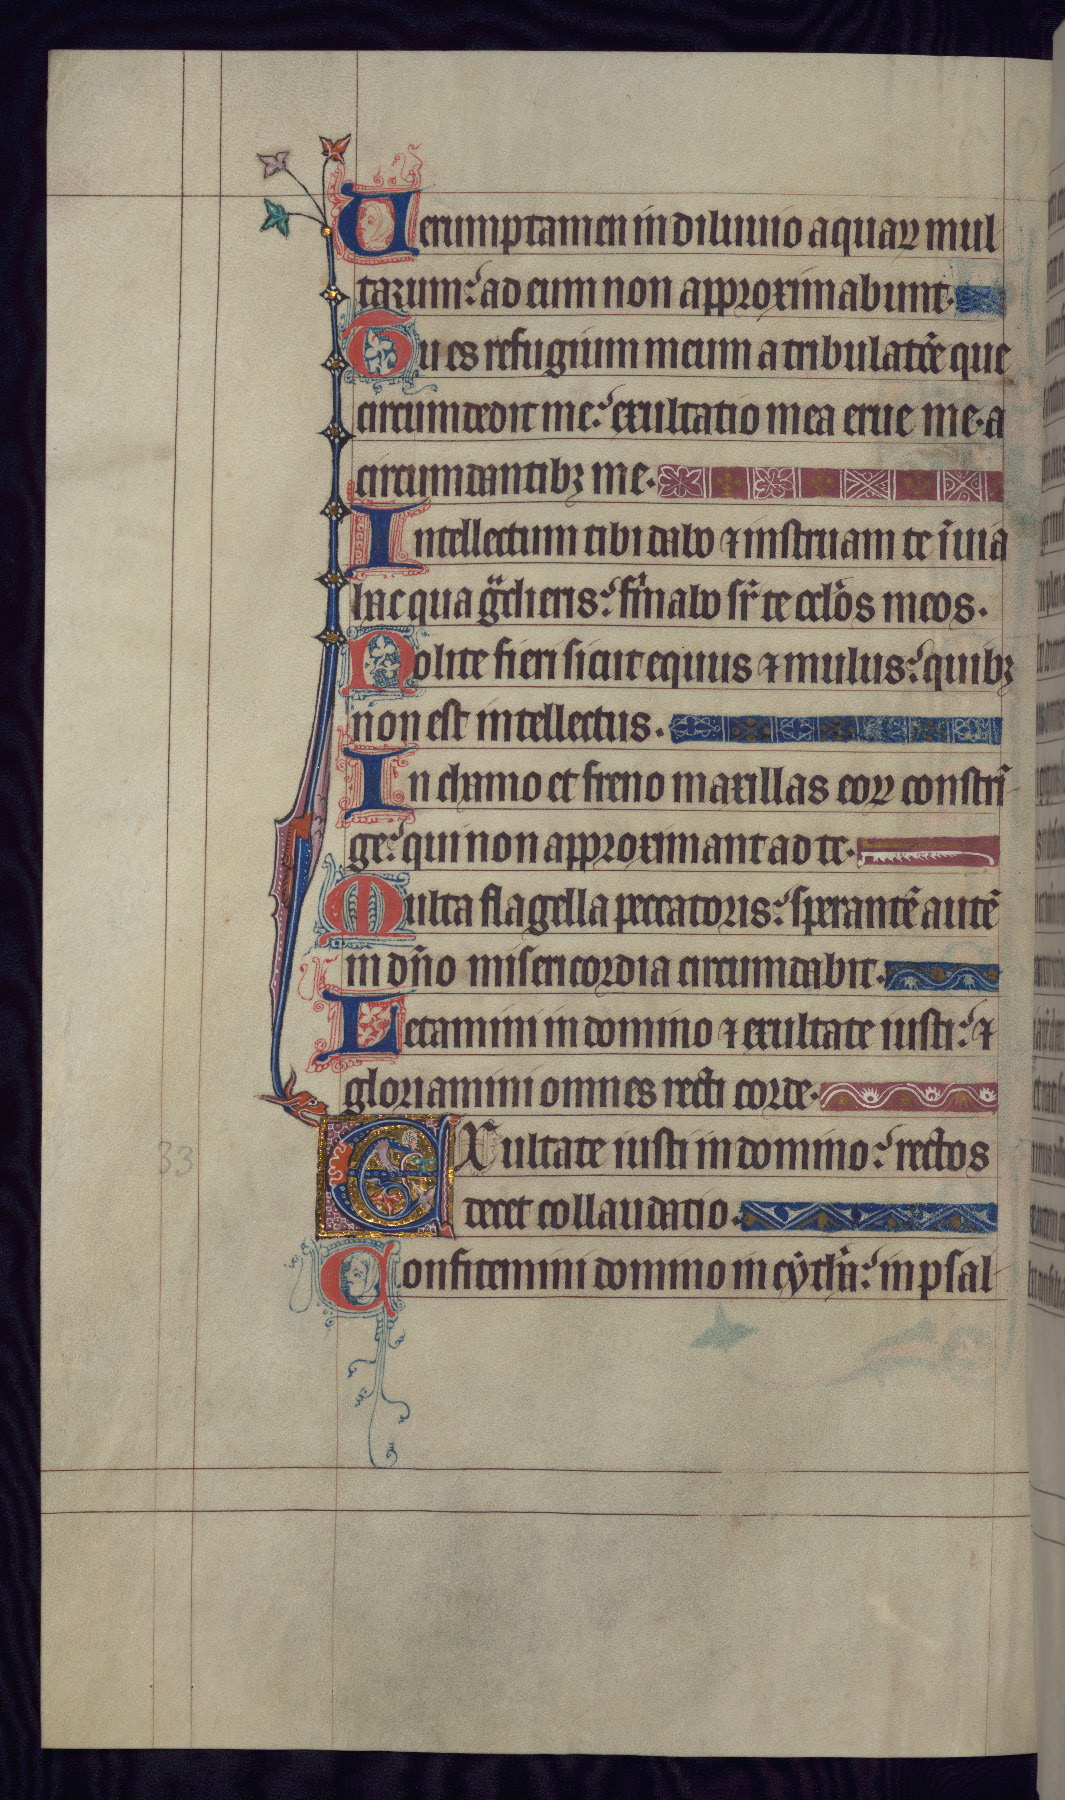 Uerumptamen in diluuio aquaꝝ mul
tarum: ad eum non approximabunt.
Tu es refugium meum a tribulatōe que
circumdedit me: exultatio mea erue me a
circumdantibꝫ me.
Intellectum tibi dabo ⁊ instruam te ī uia
hac qua gͣdieris: firmabo sr̄ te oclōs meos.
Nolite fieri sicut equus ⁊ mulus: quibꝫ
non est intellectus.
In chamo et freno maxillas eoꝝ constrī
ge: qui non approximant ad te.
Multa flagella peccatoris: sperantē autē
in dn̄o misericordia circumdabit.
Letamini in domino ⁊ exultate iusti: ⁊
gloriamini omnes recti corde.
Exultate iusti in domino: rectos
decet collaudatio.
Confitemini domino in cẏthͣa: in psal
33